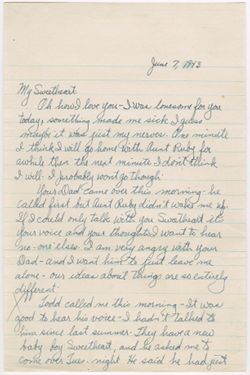 June 7, 1943
My Sweetheart,
Oh how I love you - I was lonesome for you
today, something made me sick I guess
maybe it was just my nerves. One minute
I think I will go home with Aunt Ruby for
awhile then the next minute I don't think
I will - I probably won't go though.
Your Dad came over this morning - he
called first but Aunt Ruby didn't wake me up.
If I could only talk with you Sweetheart it's
your voice and your thoughts I want to hear
no-one else's. I am very angry with your
Dad - and I want him to just leave me
alone - our ideas about things are so entirely
different.
Todd called me this morning - It was
good to hear his voice - I hadn't talked to
him since last summer. They have a new
baby boy Sweetheart, and he asked me to
come over Tues. night. He said he had just